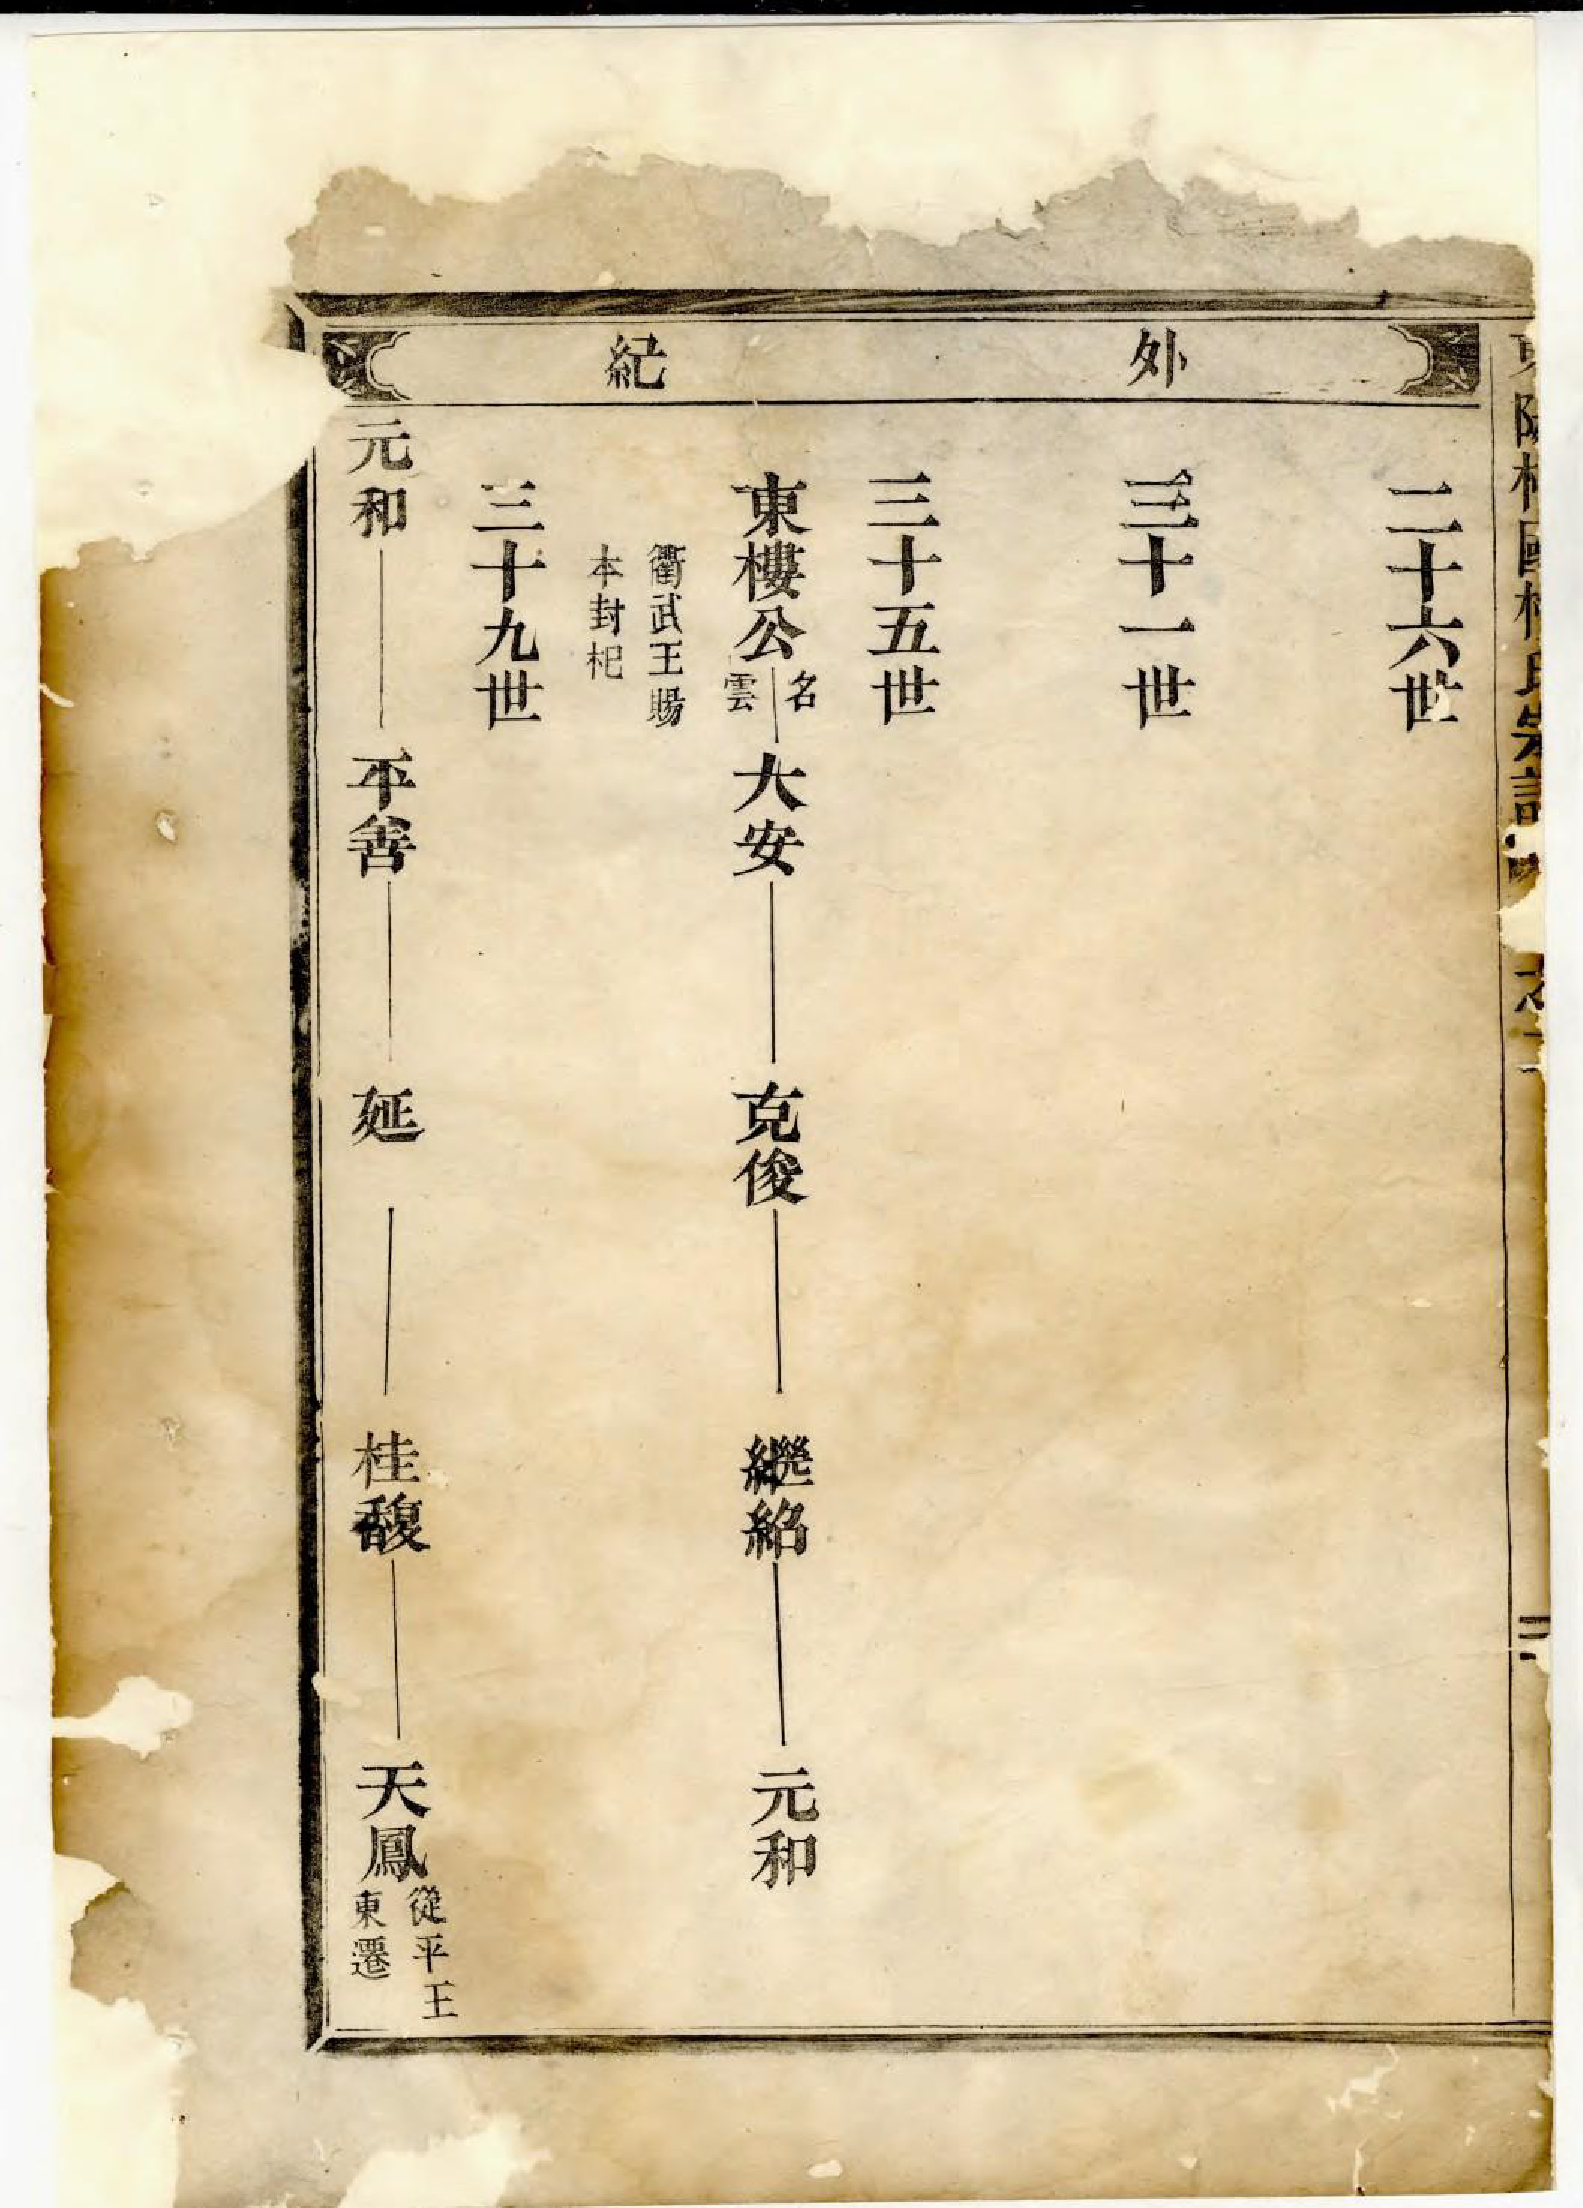 外紀
二十六世
三十一世
三十五世
東樓公 名雲 大安 克俊 繼紹 元和
衞武王賜
本封杞
三十九世
元和 平善 延 桂馥 天鳳 從平王
東遷